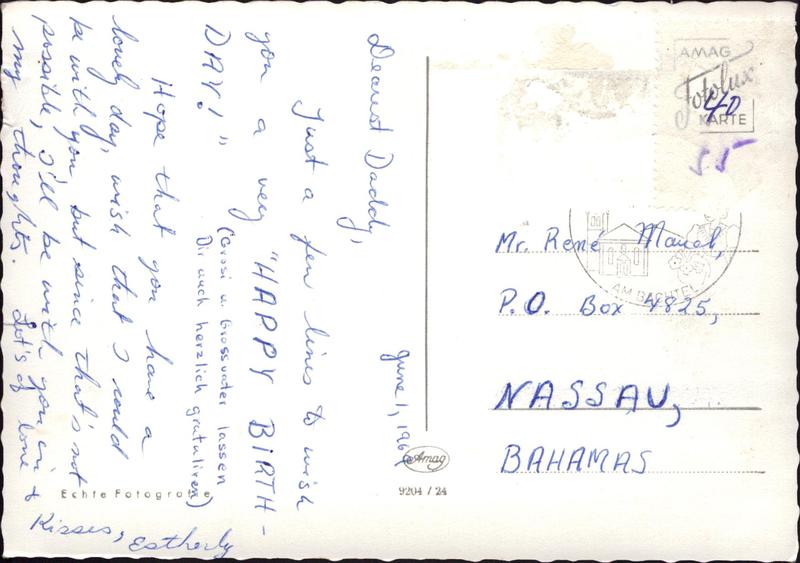 June 1, 196
Dearest Daddy,
Just a few lines to wish
you a very "HAPPY BIRTH-
DAY!"
(Grosi u. Grossvater lassen
Dir auch herzlich gratulieren)
Hope that you have a
lovely day, wish that I could
be with you but since that's not
possible, I'll be with you in
my thoughts. Lot's of love &
Kisses, Estherly
AMAG
Fotolux
KARTE
40
55
AM BACHTEL
Mr. René
P.O. Box 4825,
NASSAU,
BAHAMAS
Echte Fotografie
Amag
9204 / 24